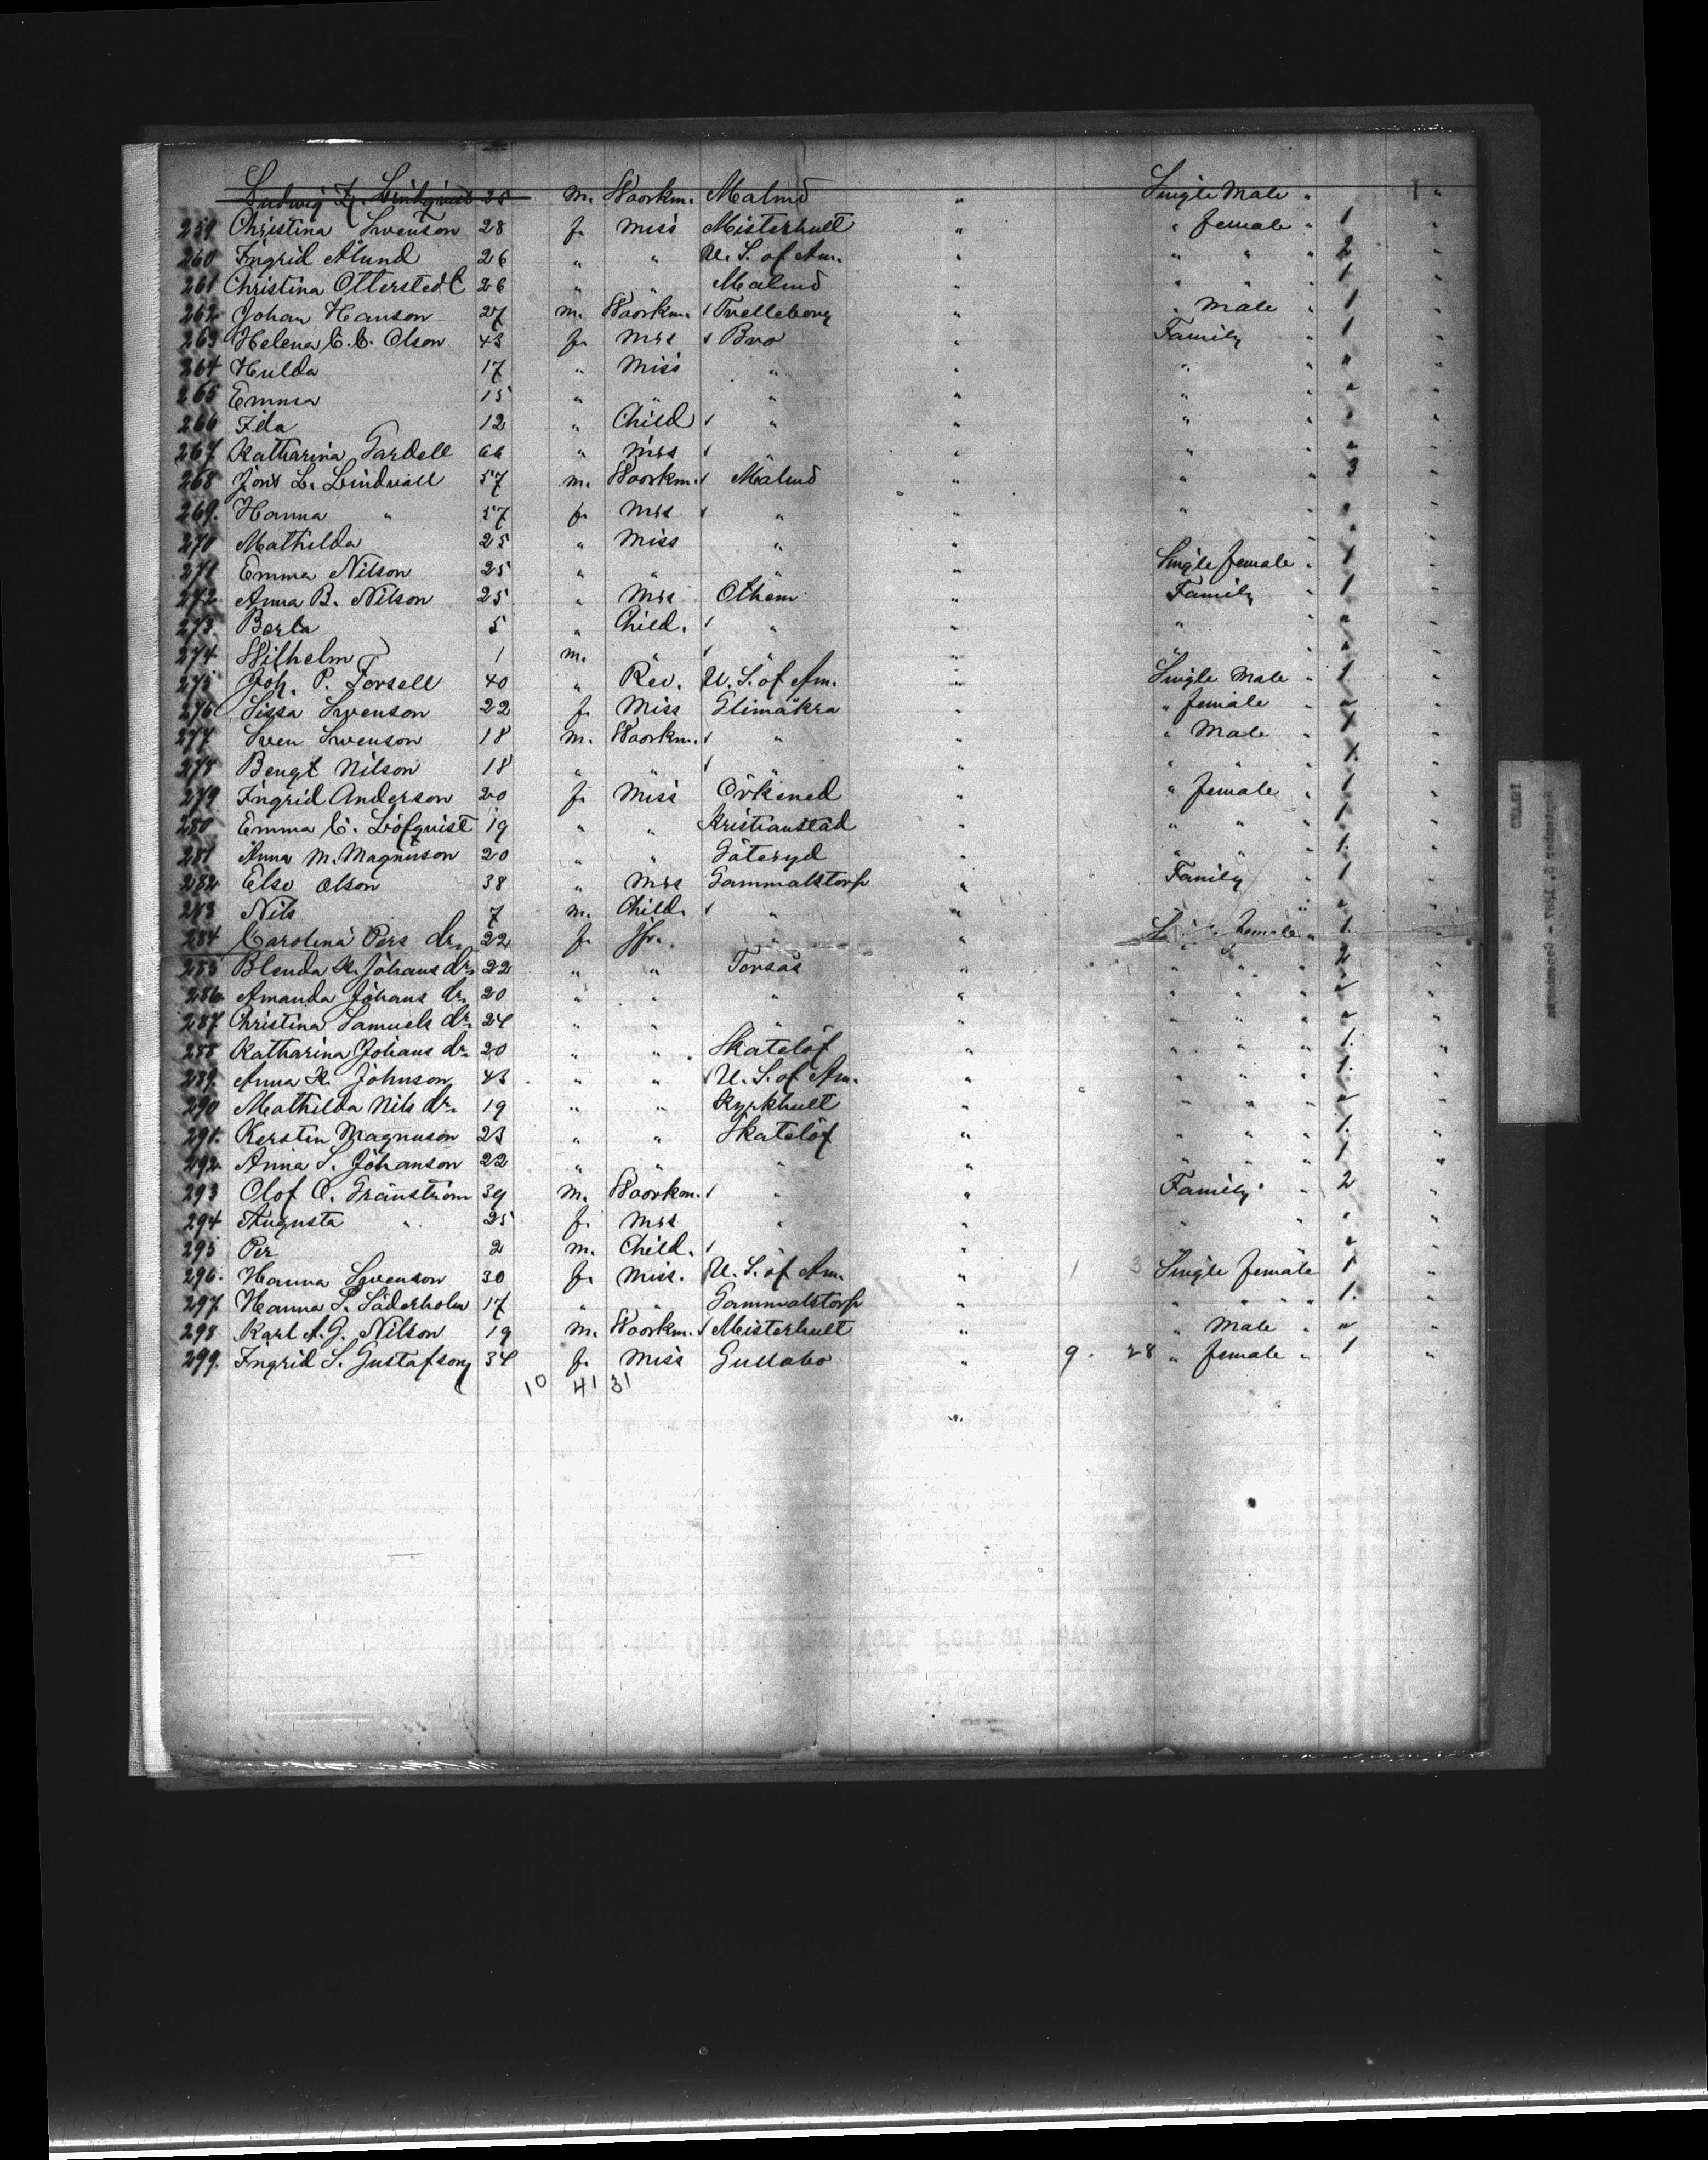 Ludwig F. Lindquist 25 m. Woorkm. Malmö " Single Male " 1 "
259 Christina Swenson 28 f. Miss Misterhult " " female " 1 "
260 Ingrid Ålund 26 " " U. S. of Am. " " " " 2 "
261 Christina Otterstedt 26 " " Malmö " " " " 1 "
262 Johan Hanson 27 m. Woorkm. Trelleborg " " Male " 1 "
263 Helena C. C. Olson 43 f. Mrs Bro " Family " 1 "
264 Hulda 17 " Miss " " " " " "
265 Emma 15 " " " " " " " "
266 Ida 12 " Child " " " " " "
267 Katharina Gardell 66 " Mrs " " " " " "
268 Jöns L. Lindvall 57 m. Woorkm. Malmö " " " 3 "
269. Hanna " 57 f. Mrs " " " " " "
270 Mathilda 25 " Miss " " " " " "
271 Emma Nilson 25 " " " " Single female " 1 "
272 Anna B. Nilson 25 " Mrs Othem " Family " 1 "
273. Berta 5 " Child. " " " " " "
274 Wilhelm 1 m. " " " " " " "
275 Joh. P. Torsell 40 " Rev. U. S. of Am. " Single Male " 1 "
276 Sissa Swenson 22 f. Miss Glimåkra " " female " " "
277 Sven Swenson 18 m. Woorkm. " " " Male " 1 "
278 Bengt Nilson 18 " " " " " " " 1. "
279 Ingrid Anderson 20 f. Miss Örkened " " female " 1 "
280 Emma C. Löfquist 19 " " Kristianstad " " " " 1 "
281 Anna M. Magnuson 20 " " Göteryd " " " " 1. "
282 Else Olson 38 " Mrs Gammalstorp " Family " 1 "
283 Nils 7 m. Child. " " " " " "
284 Carolina Pers dr. 22 f. Jfr. " " female " 1. "
285 Blenda K. Johans dr. 22 " " Torsås " " " " 2 "
286. Amanda Johans dr. 20 " " " " " " " " "
287. Christina Samuels dr. 24 " " " " " " " " "
288 Katharina Johans dr. 20 " " Skatelöf " " " " 1. "
289. Anna K. Johnson 43 " " U. S. of Am. " " " " 1. "
290 Mathilda Nils dr. 19 " " Kyrkhult " " " " " "
291. Kerstin Magnuson 23 " " Skatelöf " " " " 1. "
292. Anna S. Johanson 22 " " " " " " " 1 "
293 Olof O. Granström 39 m. Woorkm. " " Family " 2 "
294 Augusta " 25 f. Mrs " " " " " "
295 Per 2 m. Child. " " " "
296. Hanna Swenson 30 f. Miss. U. S. of Am. " 1 3 Single female 1 "
297. Hanna P. Söderholm 17 " " Gammalstorp " " " " 1. "
298 Karl A. G. Nilson 19 m. Woorkm. Misterhult " " Male " " "
299. Ingrid S. Gustafson 34 f. Miss Gullabo " 9. 28 " female " 1 "
10 41 31